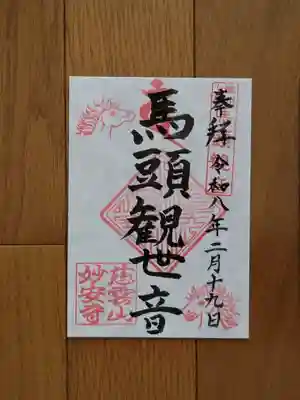 奉拝
令和八年二月十九日
馬頭観世音
慈雲山
妙安寺